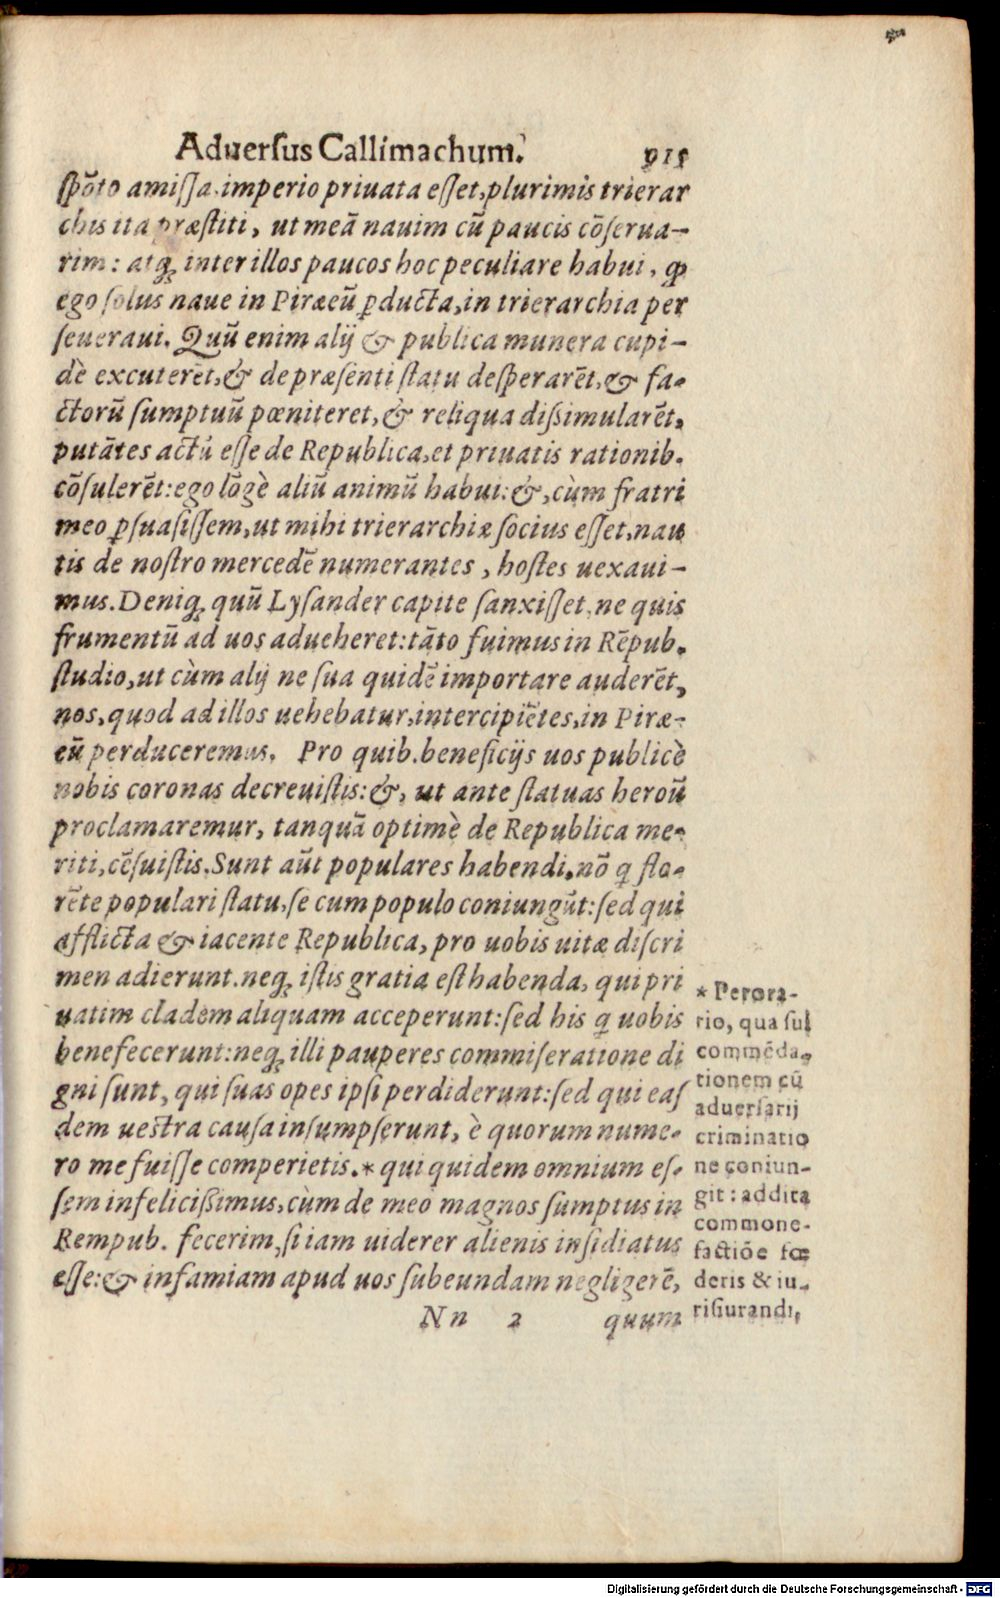 Aduersus Callimachum. 915
spōto amissa, imperio priuata esset, plurimis trierar
chis ita præstiti, ut meā nauim cū paucis cōserua-
rim: atq; inter illos paucos hoc peculiare habui, ꝙ
ego solus naue in Piræeū ꝑducta, in trierarchia per
seueraui. Quū enim alij & publica munera cupi-
dè excuterēt, & de præsenti statu desperarēt, & fa-
ctorū sumptuū pœniteret, & reliqua dißimularēt,
putātes actū esse de Republica, et priuatis rationib.
cōsulerēt: ego lōgè aliū animū habui: &, cùm fratri
meo ꝑsuasissem, ut mihi trierarchiæ socius esset, nau
tis de nostro mercedē numerantes, hostes uexaui-
mus. Deniq; quū Lysander capite sanxisset, ne quis
frumentū ad uos adueheret: tāto fuimus in Rēpub.
studio, ut cùm alij ne sua quidē importare auderēt,
nos, quod ad illos uehebatur, intercipiētes, in Piræ-
eū perduceremus. Pro quib. beneficijs uos publicè
nobis coronas decreuistis: &, ut ante statuas heroū
proclamaremur, tanquā optimè de Republica me-
riti, cēsuistis. Sunt aūt populares habendi, nō q̄ flo-
rēte populari statu, se cum populo coniungūt: sed qui
afflicta & iacente Republica, pro uobis uitæ discri
men adierunt. neq; istis gratia est habenda, qui pri
uatim cladem aliquam acceperunt: sed his q̄ uobis
benefecerunt: neq; illi pauperes commiseratione di
gni sunt, qui suas opes ipsi perdiderunt: sed qui eas
dem uestra causa insumpserunt, è quorum nume-
ro me fuisse comperietis. * qui quidem omnium es-
sem infelicißimus, cùm de meo magnos sumptus in
Rempub. fecerim, si iam uiderer alienis insidiatus
esse: & infamiam apud uos subeundam negligerē,
Nn 2 quum
* Perora-
tio, qua sui
commēda-
tionem cū
aduersarij
criminatio
ne coniun-
git: addita
commone-
factiōe fœ
deris & iu-
risiurandi,
Digitalisierung gefördert durch die Deutsche Forschungsgemeinschaft - DFG